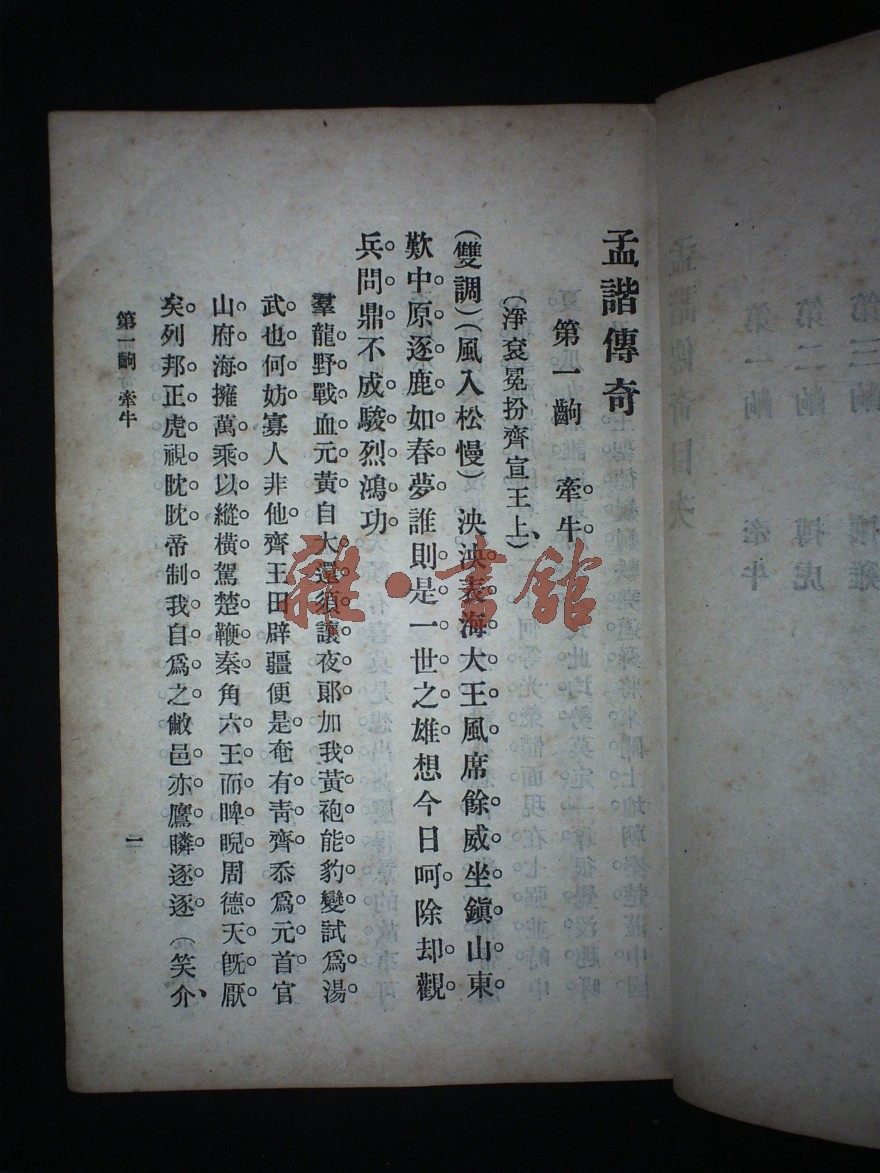 孟諧傳奇
第一齣　牽牛。
（淨袞冕扮齊宣王上、）
（雙調）（風入松慢）泱泱表海大王風。席餘威坐鎮山東。
歎中原逐鹿如春夢。誰則是一世之雄。想今日呵除却觀
兵問鼎不成駿烈鴻功。
羣龍野戰血元黃。自大還須讓夜郎。加我黃袍能豹變。試爲湯
武也何妨。寡人非他。齊王田辟疆便是。奄有靑齊。忝爲元首。官
山府海。擁萬乘以縱橫。駕楚鞭秦。角六王而睥睨。周德天旣厭
矣。列邦正虎視眈眈。帝制我自爲之。敝邑亦鷹瞵逐逐。（笑介、
第一齣　牽牛
一
雜·書館
孟諧傳奇目次
第一齣　牽牛
第二齣　搏虎
第三齣　攘雞